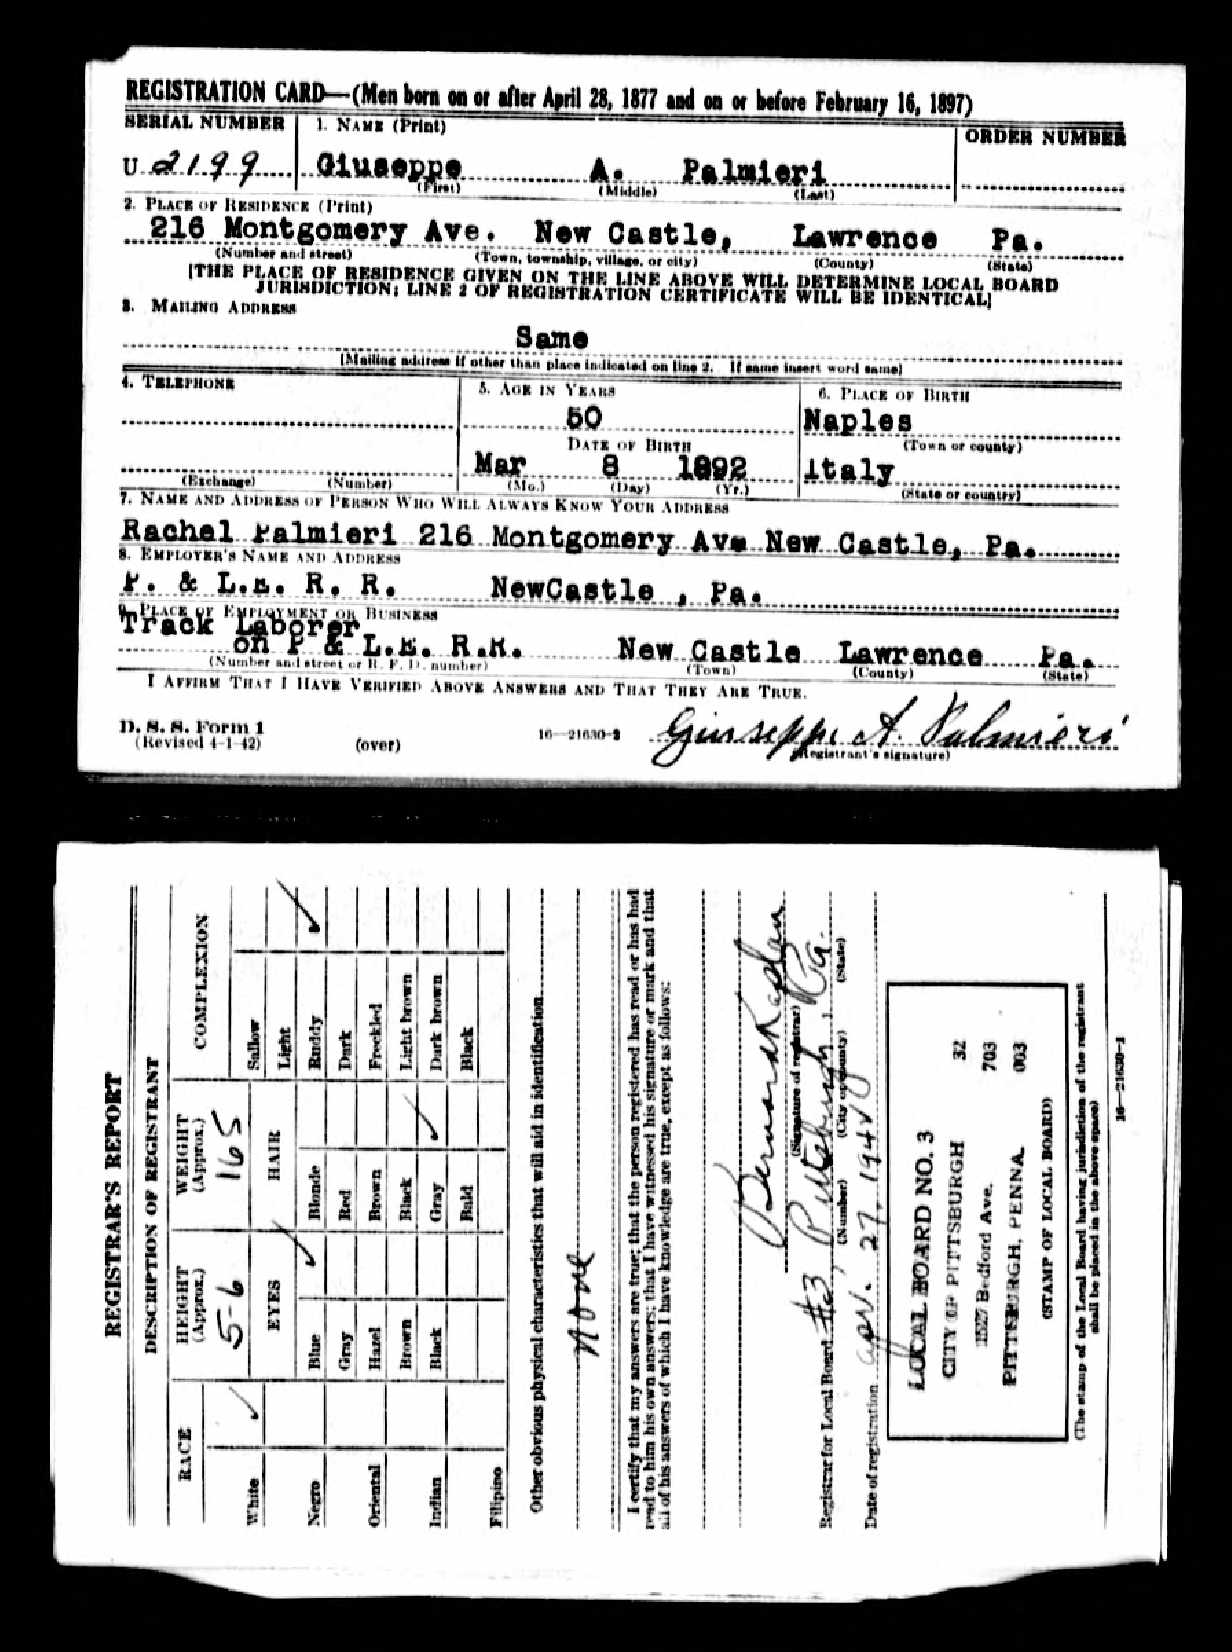 REGISTRATION CARD—(Men born on or after April 28, 1877 and on or before February 16, 1897)
SERIAL NUMBER 1. NAME (Print) ORDER NUMBER
U 2199 Giuseppe A. Palmieri
(First) (Middle) (Last)
2. PLACE OF RESIDENCE (Print)
216 Montgomery Ave. New Castle, Lawrence Pa.
(Number and street) (Town, township, village, or city) (County) (State)
[THE PLACE OF RESIDENCE GIVEN ON THE LINE ABOVE WILL DETERMINE LOCAL BOARD
JURISDICTION; LINE 2 OF REGISTRATION CERTIFICATE WILL BE IDENTICAL]
3. MAILING ADDRESS
Same
[Mailing address if other than place indicated on line 2. If same insert word same]
4. TELEPHONE 5. AGE IN YEARS 6. PLACE OF BIRTH
50 Naples
DATE OF BIRTH (Town or county)
Mar 8 1892 italy
(Exchange) (Number) (Mo.) (Day) (Yr.) (State or country)
7. NAME AND ADDRESS OF PERSON WHO WILL ALWAYS KNOW YOUR ADDRESS
Rachel Palmieri 216 Montgomery Ave New Castle, Pa.
8. EMPLOYER'S NAME AND ADDRESS
P. & L.E. R. R. NewCastle , Pa.
9. PLACE OF EMPLOYMENT OR BUSINESS
Track Laborer
on P & L.E. R.R. New Castle Lawrence Pa.
(Number and street or R. F. D. number) (Town) (County) (State)
I AFFIRM THAT I HAVE VERIFIED ABOVE ANSWERS AND THAT THEY ARE TRUE.
D. S. S. Form 1
(Revised 4-1-42) (over) 16—21630-2 Giuseppe A. Palmieri
(Registrant's signature)
REGISTRAR'S REPORT
DESCRIPTION OF REGISTRANT
RACE HEIGHT (Approx.) WEIGHT (Approx.) COMPLEXION
5-6 165
White ✓ EYES HAIR Sallow
Light ✓
Negro Blue ✓ Blonde Ruddy
Gray Red Dark
Oriental Hazel Brown Freckled
Brown Black Light brown
Indian Black Gray ✓ Dark brown
Bald Black
Filipino
Other obvious physical characteristics that will aid in identification
none
I certify that my answers are true; that the person registered has read or has had
read to him his own answers; that I have witnessed his signature or mark and that
all of his answers of which I have knowledge are true, except as follows:
Bernard Kaplan
(Signature of registrar)
Registrar for Local Board #3 Pittsburgh Pa.
(Number) (City or county) (State)
Date of registration Apr. 27, 1942
LOCAL BOARD NO. 3
CITY OF PITTSBURGH 32
1527 Bedford Ave. 703
PITTSBURGH, PENNA. 003
(STAMP OF LOCAL BOARD)
(The stamp of the Local Board having jurisdiction of the registrant
shall be placed in the above space)
16—21630-1